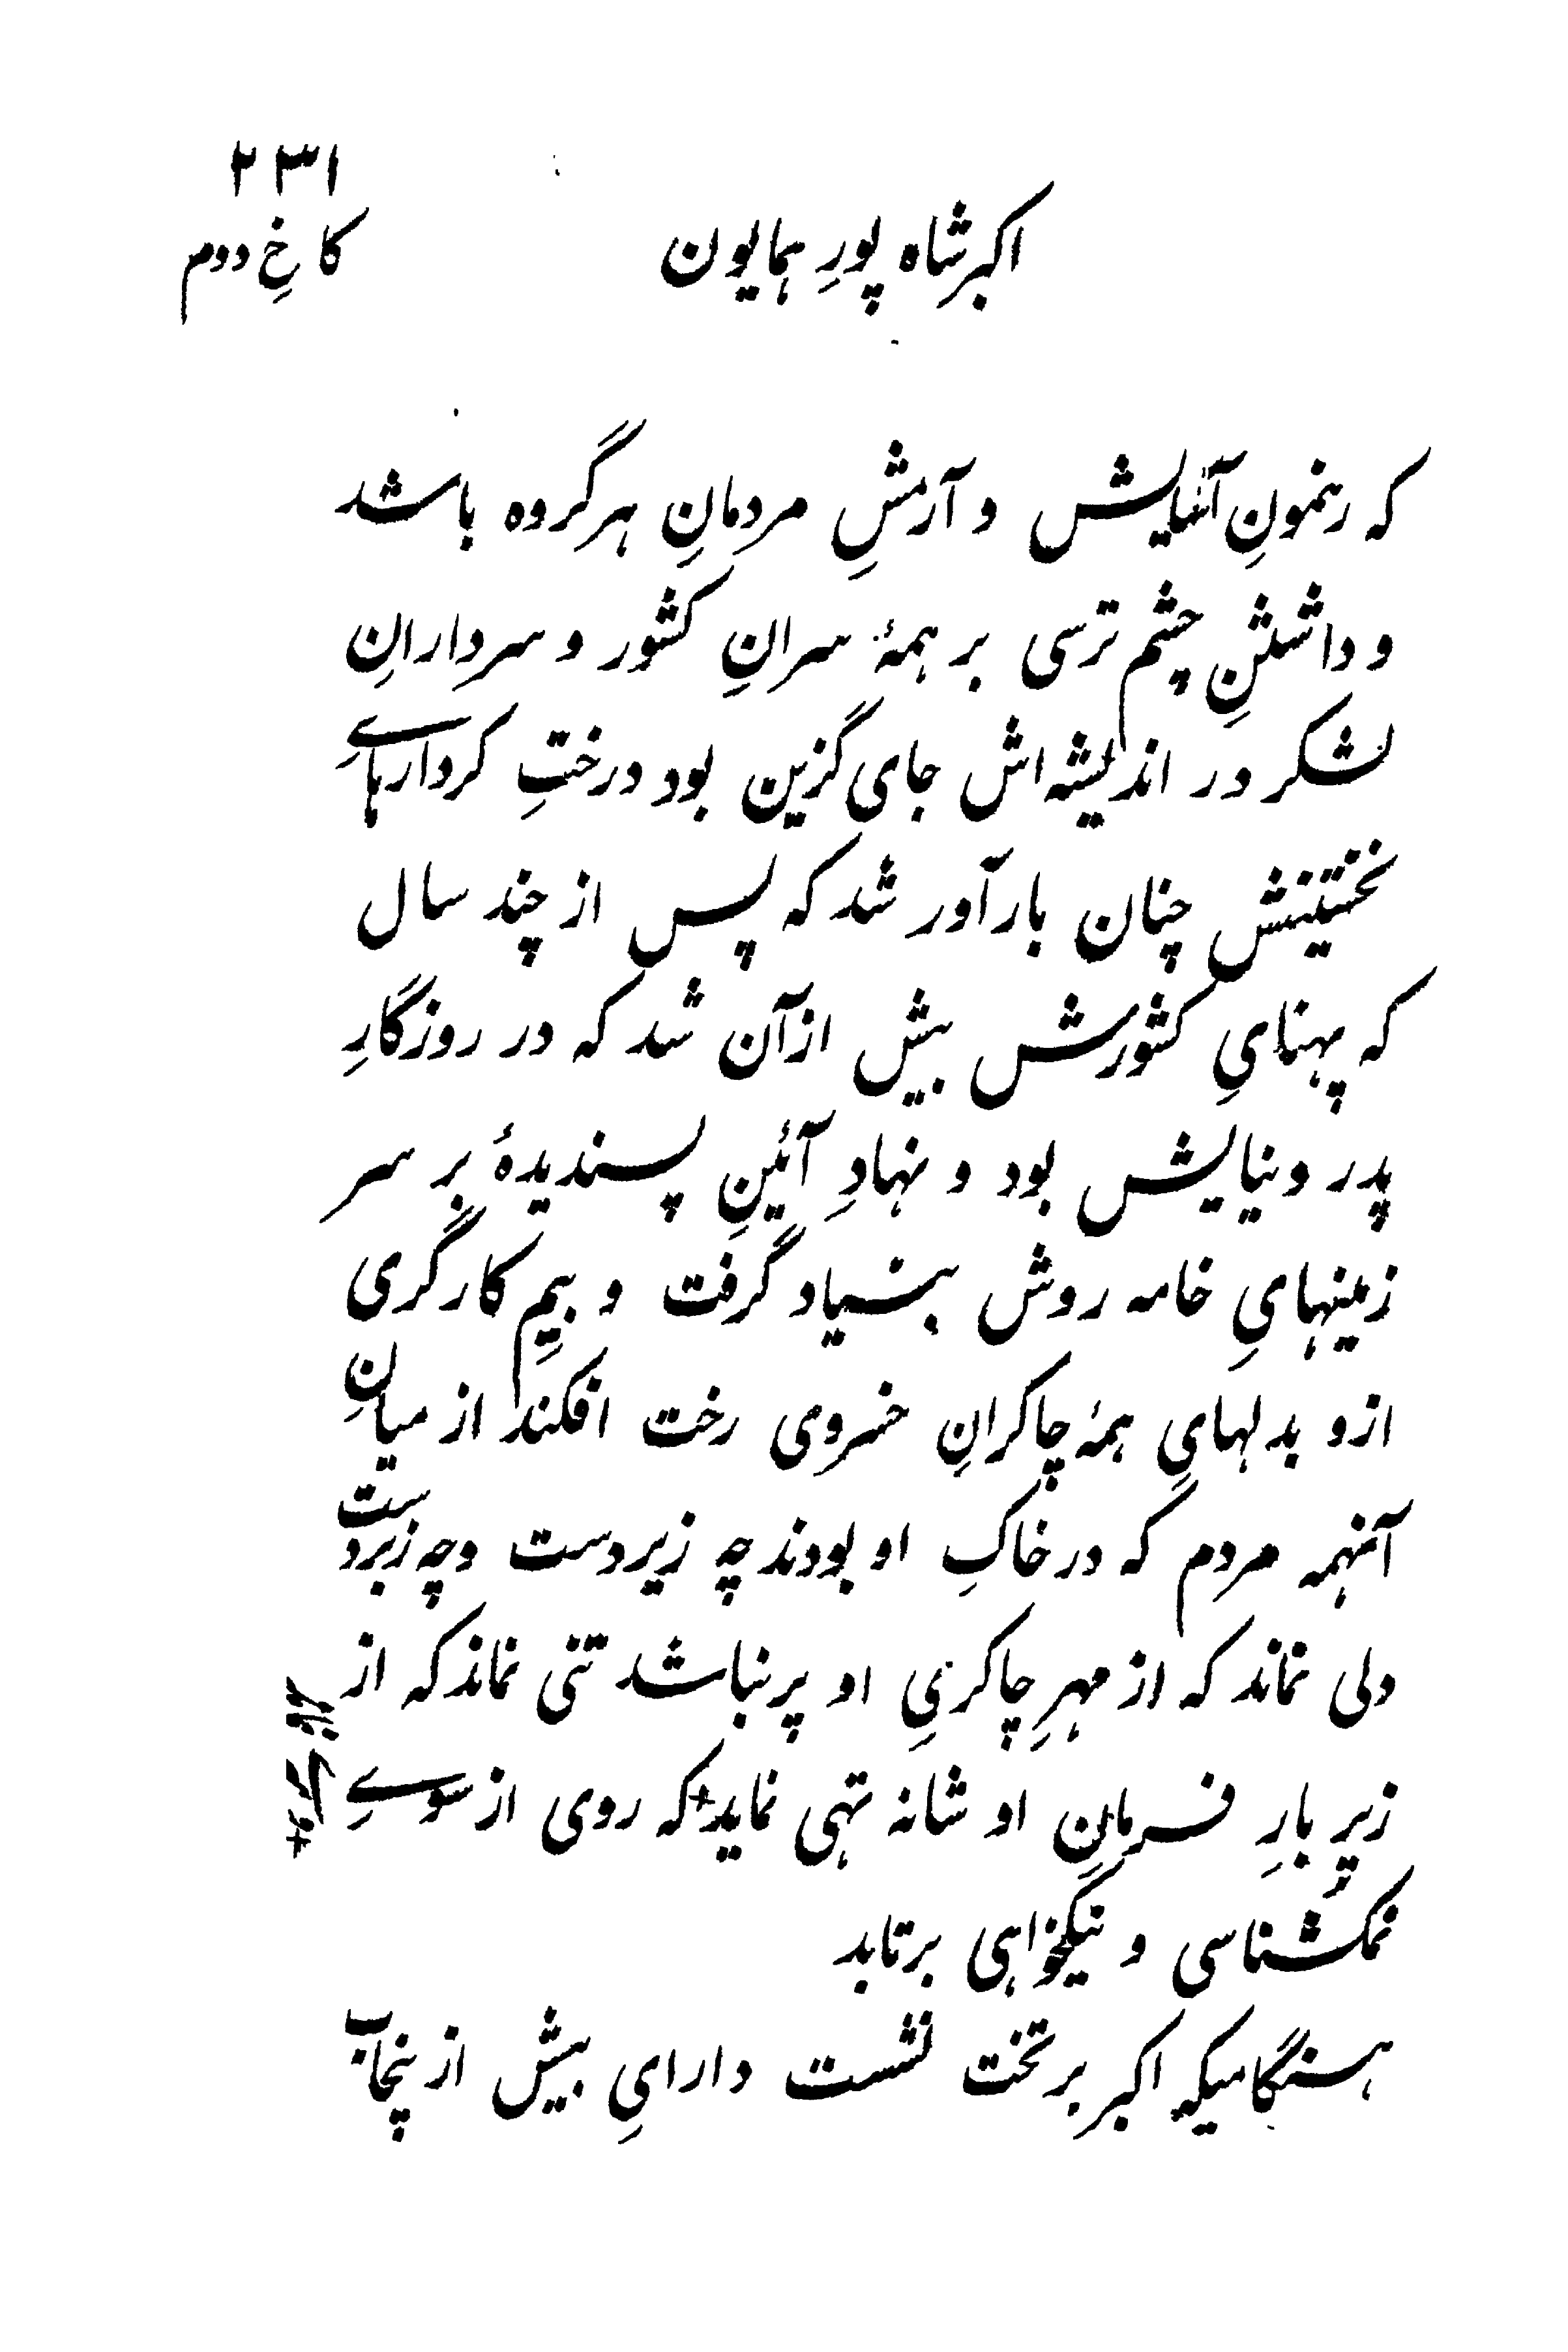 ۲۳۱
اکبر شاه پورِ همایون
کاخِ دوم
که رهنمونِ آسایش و آرمشِ مردمانِ هر گروه باشد
و داشتنِ چشم ترسی بر همهٔ سرانِ کشور و سردارانِ
لشکر در اندیشه اش جای گزین بود درختِ کردارهایِ
نخستینش چنان بارآور شد که پس از چند سال
که پهنایِ کشورش بیش ازآن شد که در روزگارِ
پدر و نیایش بود و نهادِ آئینِ پسندیدهٔ بر سر
زمینهایِ خامه روش بنیاد گرفت و بیمِ کارگری
ازو بدلهایِ همهٔ چاکرانِ خسروی رخت افکند از میانِ
آنهمه مردم که در خاکِ او بودند چه زیردست و چه زبردست
دلی نماند که از مهرِ چاکریِ او پر نباشد تنی نماند که از
زیرِ بارِ فرمانِ او شانه تهی نماید+ که روی از سویِ
نمکشناسی و نیکخواهی برتابد
هنگامیکه اکبر بر تخت نشست دارایِ بیش از پنجاب